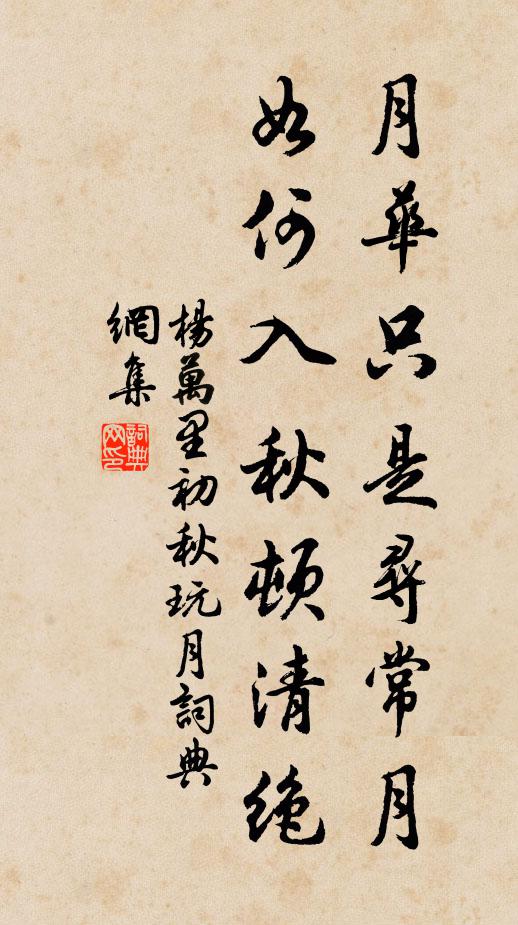 月華只是尋常月
如何入秋頓清絶
楊萬里初秋玩月詞典
網集
詞典
网印